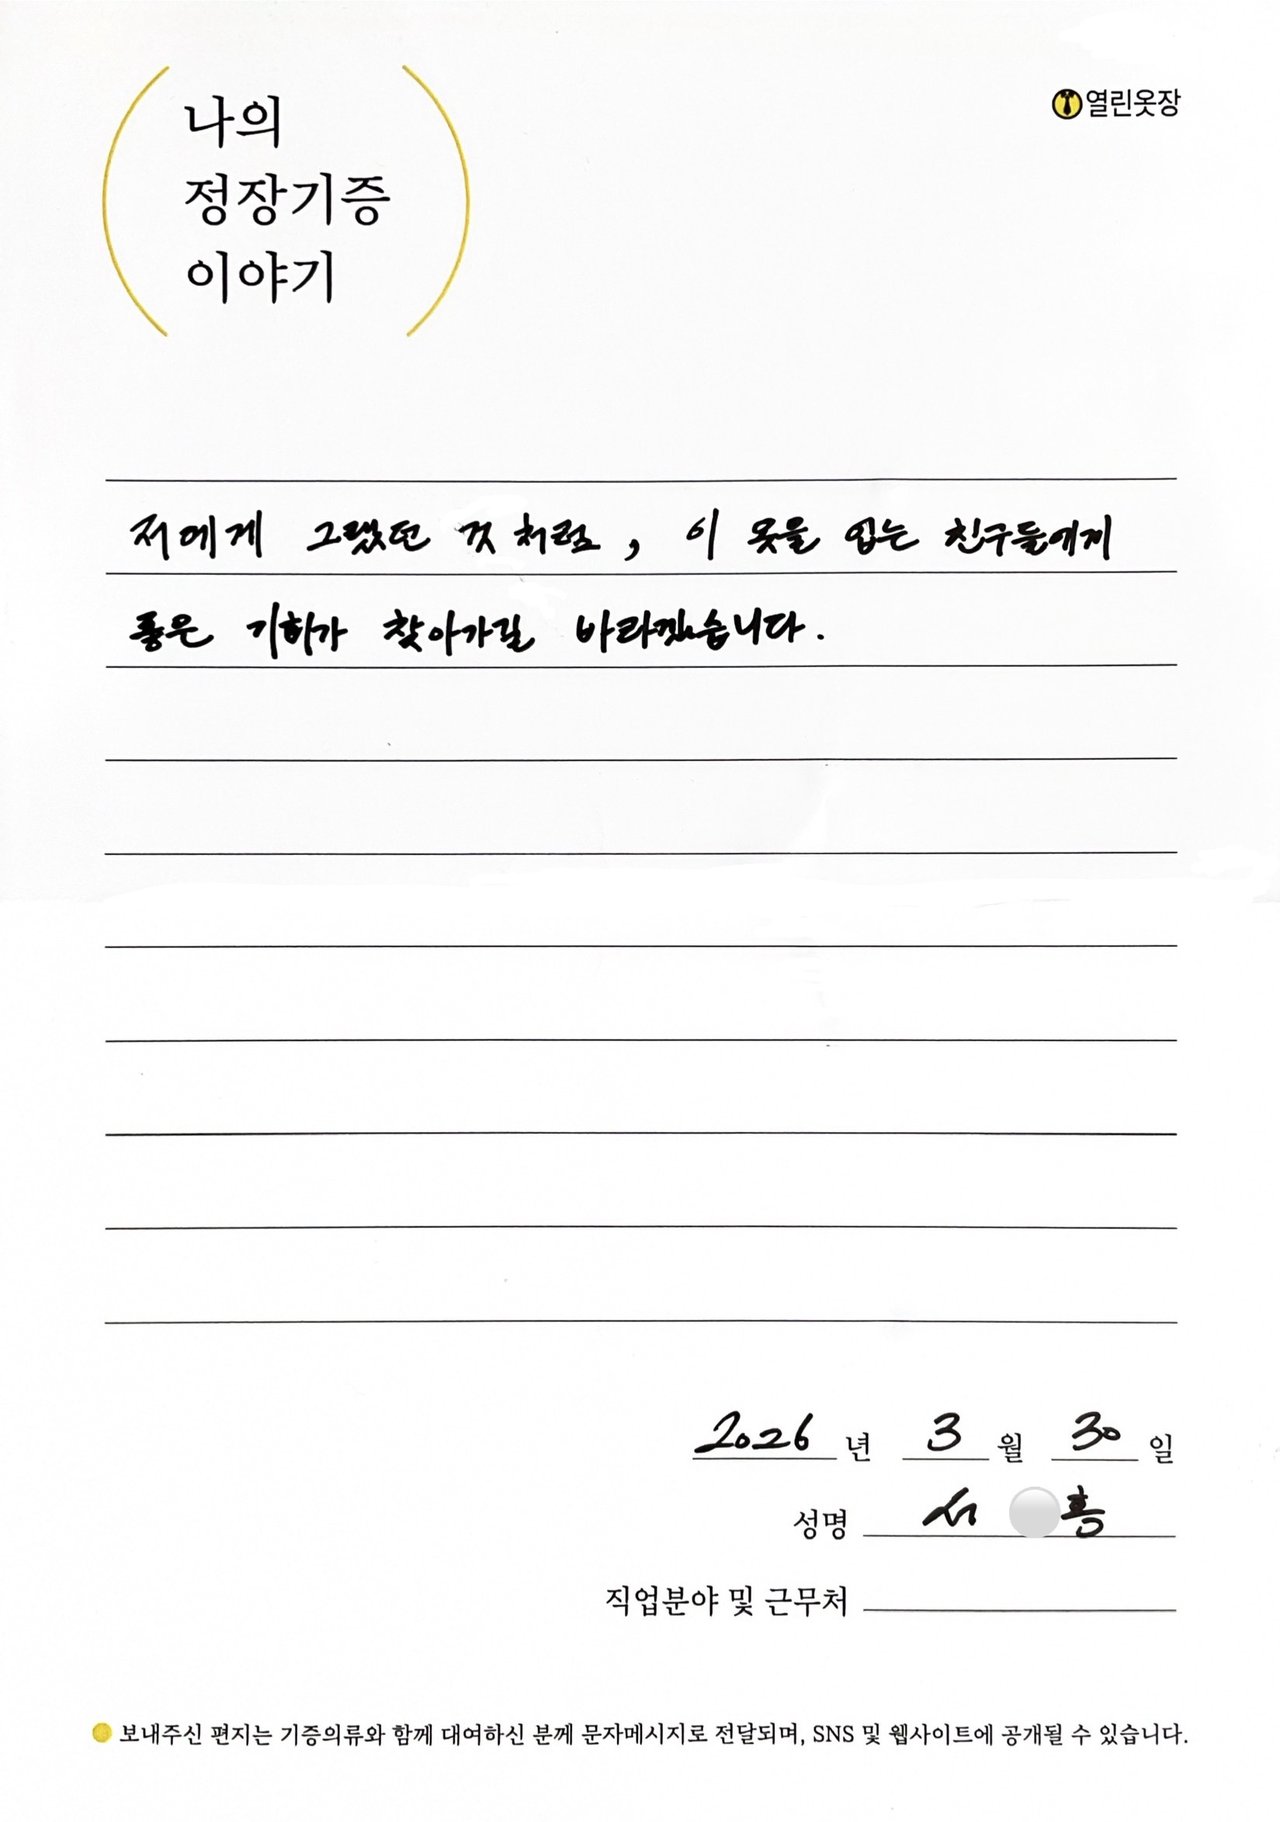 나의
정장기증
이야기
열린옷장
저에게 그랬던 것 처럼, 이 옷을 입는 친구들에게
좋은 기회가 찾아가길 바라겠습니다.
2026 년 3 월 30 일
성명 서 흥
직업분야 및 근무처
보내주신 편지는 기증의류와 함께 대여하신 분께 문자메시지로 전달되며, SNS 및 웹사이트에 공개될 수 있습니다.